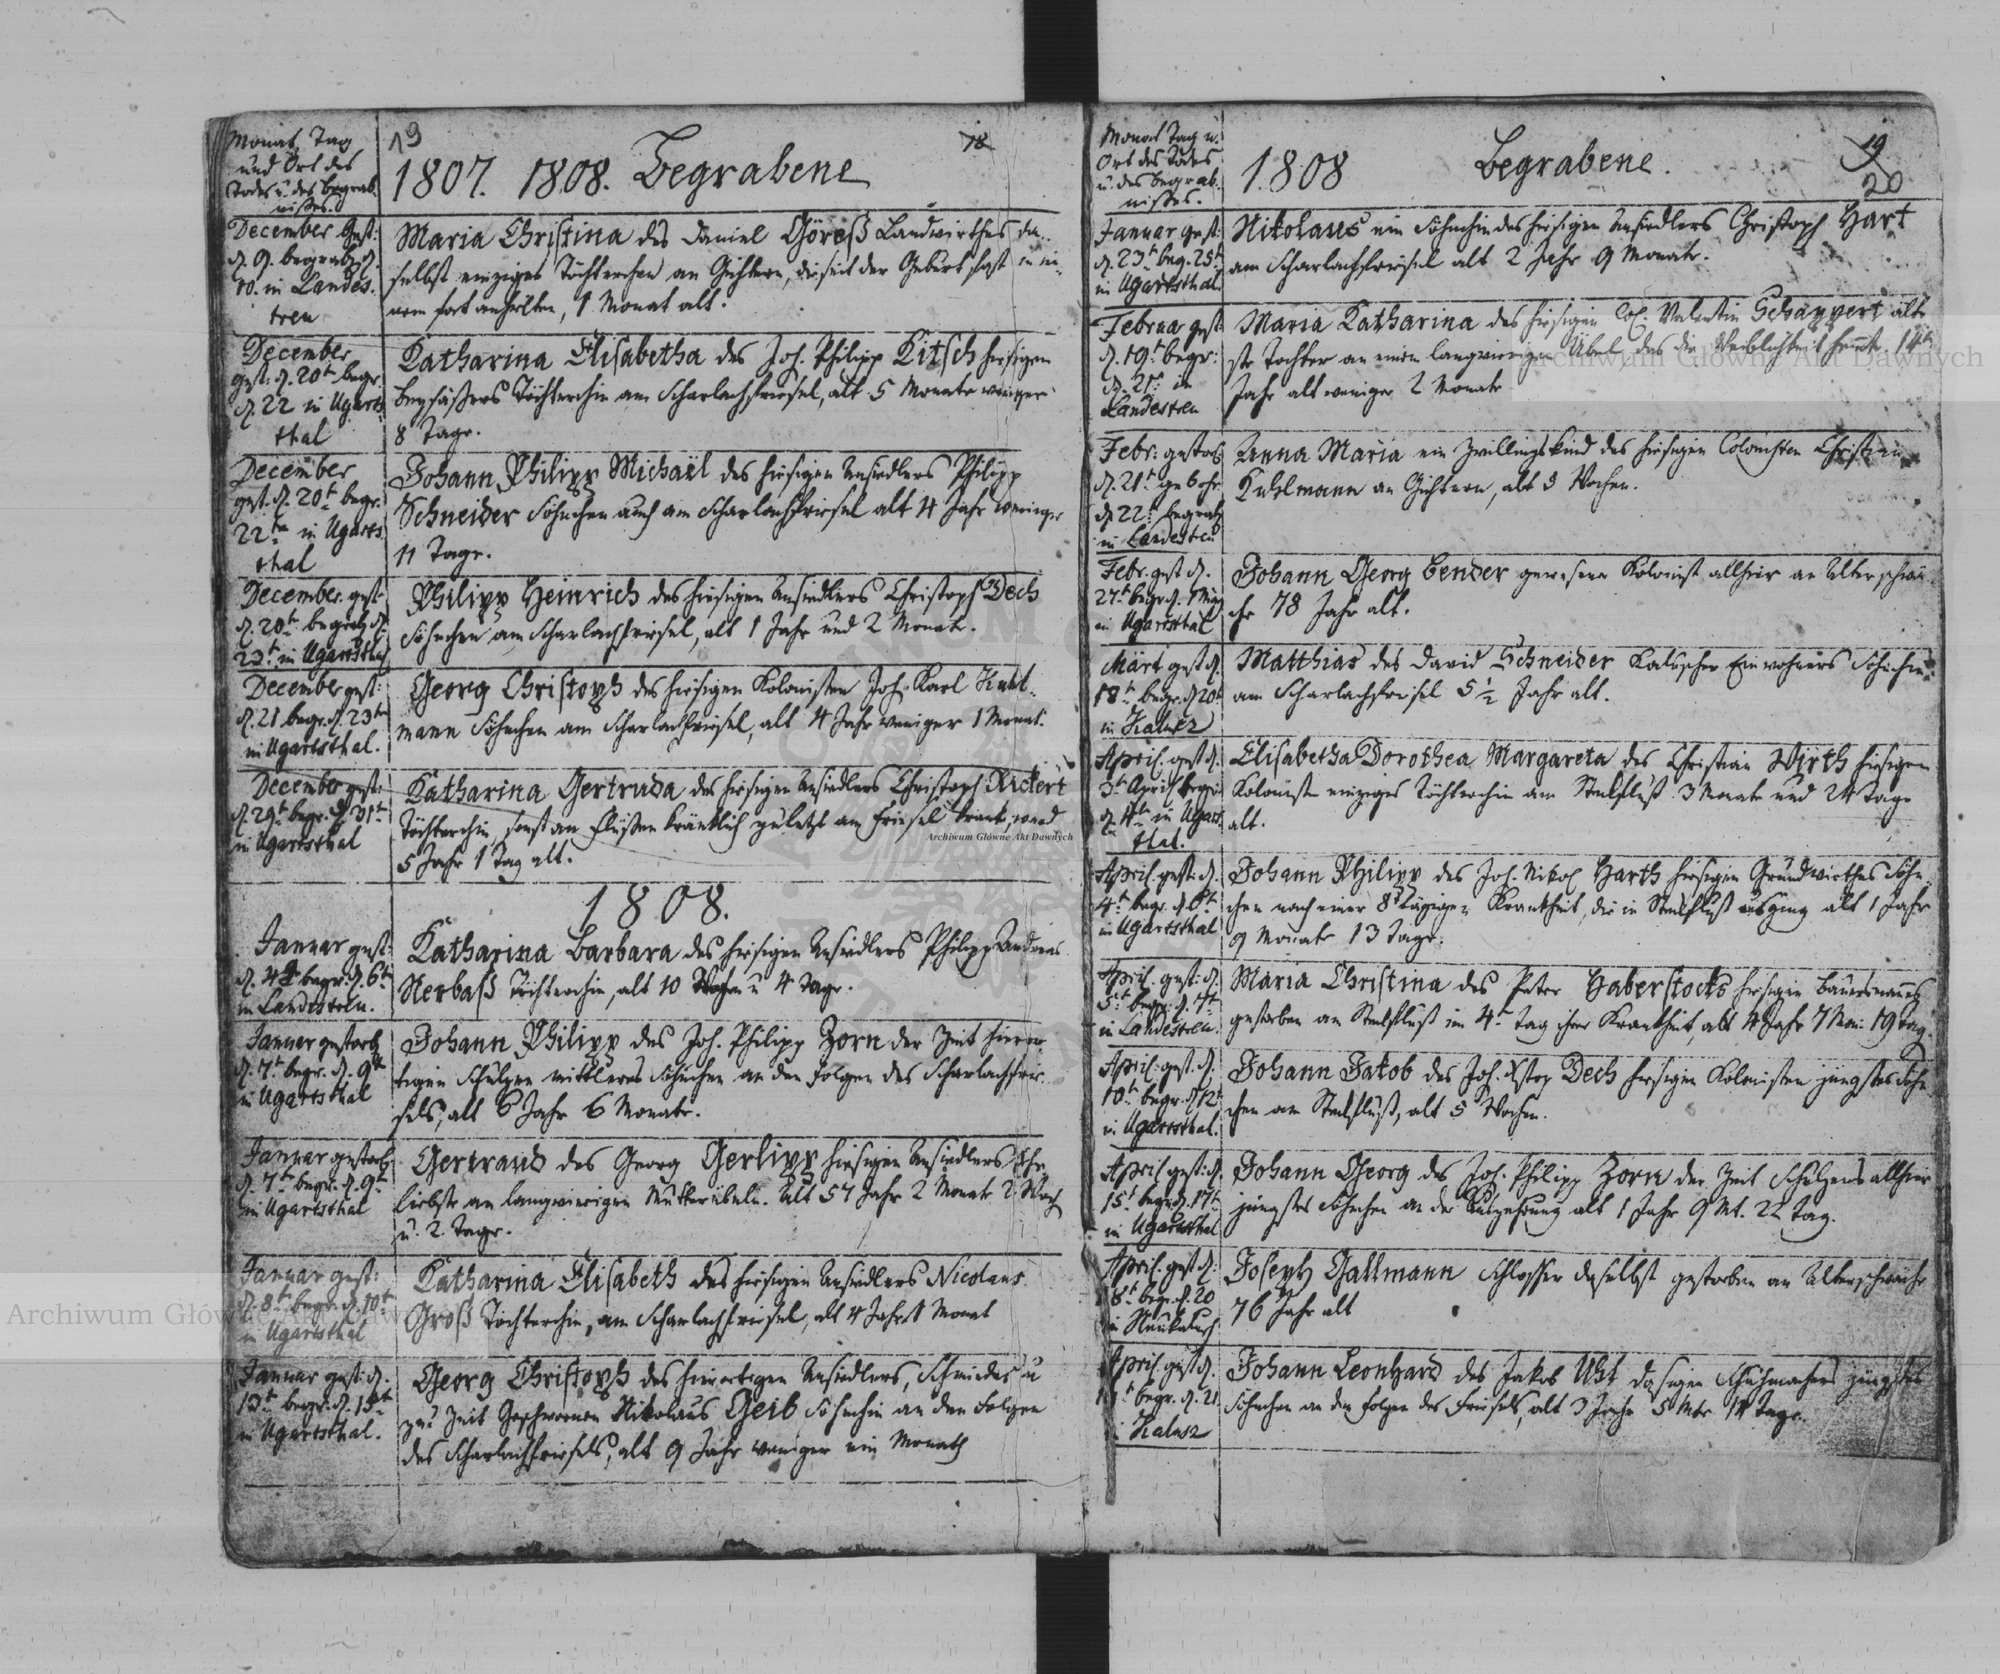 Monat, Tag
und Ort des
Todes u. des Begräb-
nisses.
19
1807. 1808. Begrabene
18
December Gest:
d. 9. begrab. d.
10. in Landes-
treu
Maria Christina des Daniel Göreß Landwirthes da-
selbst einziges Töchterchen an Gichtern, die seit der Geburt fast in ei-
nem fort anhielten, 1 Monat alt.
December
gest. d. 20t begr.
d. 22 in Ugarts-
thal
Katharina Elisabetha des Joh. Philipp Kitsch hiesigen
Beysäßers Töchterchen am Scharlachfriesel, alt 5 Monate weniger
8 Tage.
December
gest. d. 20t begr.
22te in Ugarts-
thal
Johann Philipp Michaël des hiesigen Ansiedlers Philipp
Schneider Söhnchen auch am Scharlachfriesel alt 4 Jahr weniger
11 Tage.
December gest
d. 20t begrab. d.
23t in Ugartsthal
Philipp Heinrich des hiesigen Ansiedlers Christoph Dech
Söhnchen am Scharlachfriesel, alt 1 Jahr und 2 Monate.
December gest:
d. 21 begr. d. 23te
in Ugartsthal.
Georg Christoph des hiesigen Kolonisten Joh. Karl Kuhl-
mann Söhnchen am Scharlachfriesel, alt 4 Jahr weniger 1 Monat.
December gest:
d. 29t begr. d. 31te
in Ugartsthal
Katharina Gertruda des hiesigen Ansiedlers Christoph Rickert
Töchterchen, sonst an Flüßen kränklich zuletzt am Friesel krank, ward
5 Jahr 1 Tag alt.
1808.
Januar gest:
d. 4t begr. d. 6t
in Landestreu.
Katharina Barbara des hiesigen Ansiedlers Philipp Andreas
Nerbaß Töchterchen, alt 10 Wochen u 4 Tage.
Januar gestorb
d. 7t begr. d. 9te
in Ugartsthal
Johann Philipp des Joh. Philipp Zorn der Zeit hieror-
tigen Schulzen mittleres Söhnchen an den Folgen des Scharlachfrie-
sels, alt 6 Jahr 6 Monate.
Januar gestorb
d. 7t begr. d. 9t
in Ugartsthal
Gertraud des Georg Gerlipp hiesigen Ansiedlers Ehe-
liebste an langwierigen Mutterübeln. Alt 57 Jahr 2 Monate 2 Woch
u. 2 Tage.
Januar gest:
d. 8t begr. d. 10t
in Ugartsthal
Katharina Elisabeth des hiesigen Ansiedlers Nicolaus
Groß Töchterchen, am Scharlachfriesel, alt 4 Jahr 1 Monat
Januar gest: d.
13t begr. d. 15t
in Ugartsthal.
Georg Christoph des hierortigen Ansiedlers, Schmides u
zur Zeit Geschwornen Nikolaus Geib Söhnchen an den Folgen
des Scharlachfriesels, alt 9 Jahr weniger ein Monath
Monat Tag u.
Ort des Todes
u. des Begräb-
nisses.
1808 Begrabene.
19
20
Januar gest:
d. 23t beg. 25t
in Ugartsthal
Nikolaus ein Söhnchen des hiesigen Ansiedlers Christoph Hart
am Scharlachfriesel alt 2 Jahr 9 Monate.
Februar gest:
d. 19t begr:
d. 21t in
Landestreu
Maria Katharina des hiesigen Col. Valentin Schappert älte-
ste Tochter an einem langwierigen Übel, das die Weiblichkeit hemte. 14te
Jahr alt weniger 2 Monate
Febr: gestorb
d. 21t
d. 22t begrab
in Landestreu
Anna Maria ein Zwillingskind des hiesigen Colonisten Christian
Kuhlmann an Gichtern, alt 3 Wochen.
Febr. gest d.
27t begr. d. 1 März
in Ugartsthal
Johann Georg Bender gewesener Kolonist allhier an Alterschwä-
che 78 Jahr alt.
März gest d.
18t begr. d. 20t
in Kalusz
Matthias des David Schneider Kaluscher Einwohners Söhnchen
am Scharlachfriesel 5 1/2 Jahr alt.
April. gest d.
3t April begr:
d. 4te in Ugarts-
thal.
Elisabetha Dorothea Margareta des Christian Wirth hiesigen
Kolonisten einziges Töchterchen am Steckfluß 3 Monate und 24 Tage
alt.
April. gest: d.
4t begr. d. 6te
in Ugartsthal
Johann Philipp des Joh. Nikol Harth hiesigen Grundwirthes Söhn-
chen nach einer 8 tägigen Krankheit, die in Steckfluß ausging alt 1 Jahr
9 Monate 13 Tage.
April. gest: d.
5t begr. d. 7t
in Landestreu.
Maria Christina des Peter Haberstocks hiesigen Bauersmannes
gestorben am Steckfluß im 4t Tag ihrer Krankheit, alt 4 Jahr 7 Mon: 19 Tag.
April: gest. d.
10t begr. d 12t
in Ugartsthal.
Johann Jakob des Joh. Xstop Dech hiesigen Kolonisten jüngstes Söhn-
chen am Steckfluß, alt 5 Wochen.
April gest: d.
15t begr. d. 17t
in Ugartsthal
Johann Georg des Joh. Philipp Zorn der Zeit Schulzens allhier
jüngstes Söhnchen an der Auszehrung alt 1 Jahr 9 Mt. 22 Tag.
April. gest d:
18t begr. d. 20
in Neukalusch
Joseph Gallmann Schlosser daselbst gestorben an Alterschwäche
76 Jahr alt
April. gest d.
begr. d. 21
Kalusz
Johann Leonhard des Jakob Uht dasigen Schuhmachers jüngstes
Söhnchen an den Folgen des Friesels, alt 3 Jahr 5 Mte 14 Tage.
Archiwum Główne Akt Dawnych
Archiwum Główne Akt Dawnych
Archiwum Główne Akt Dawnych